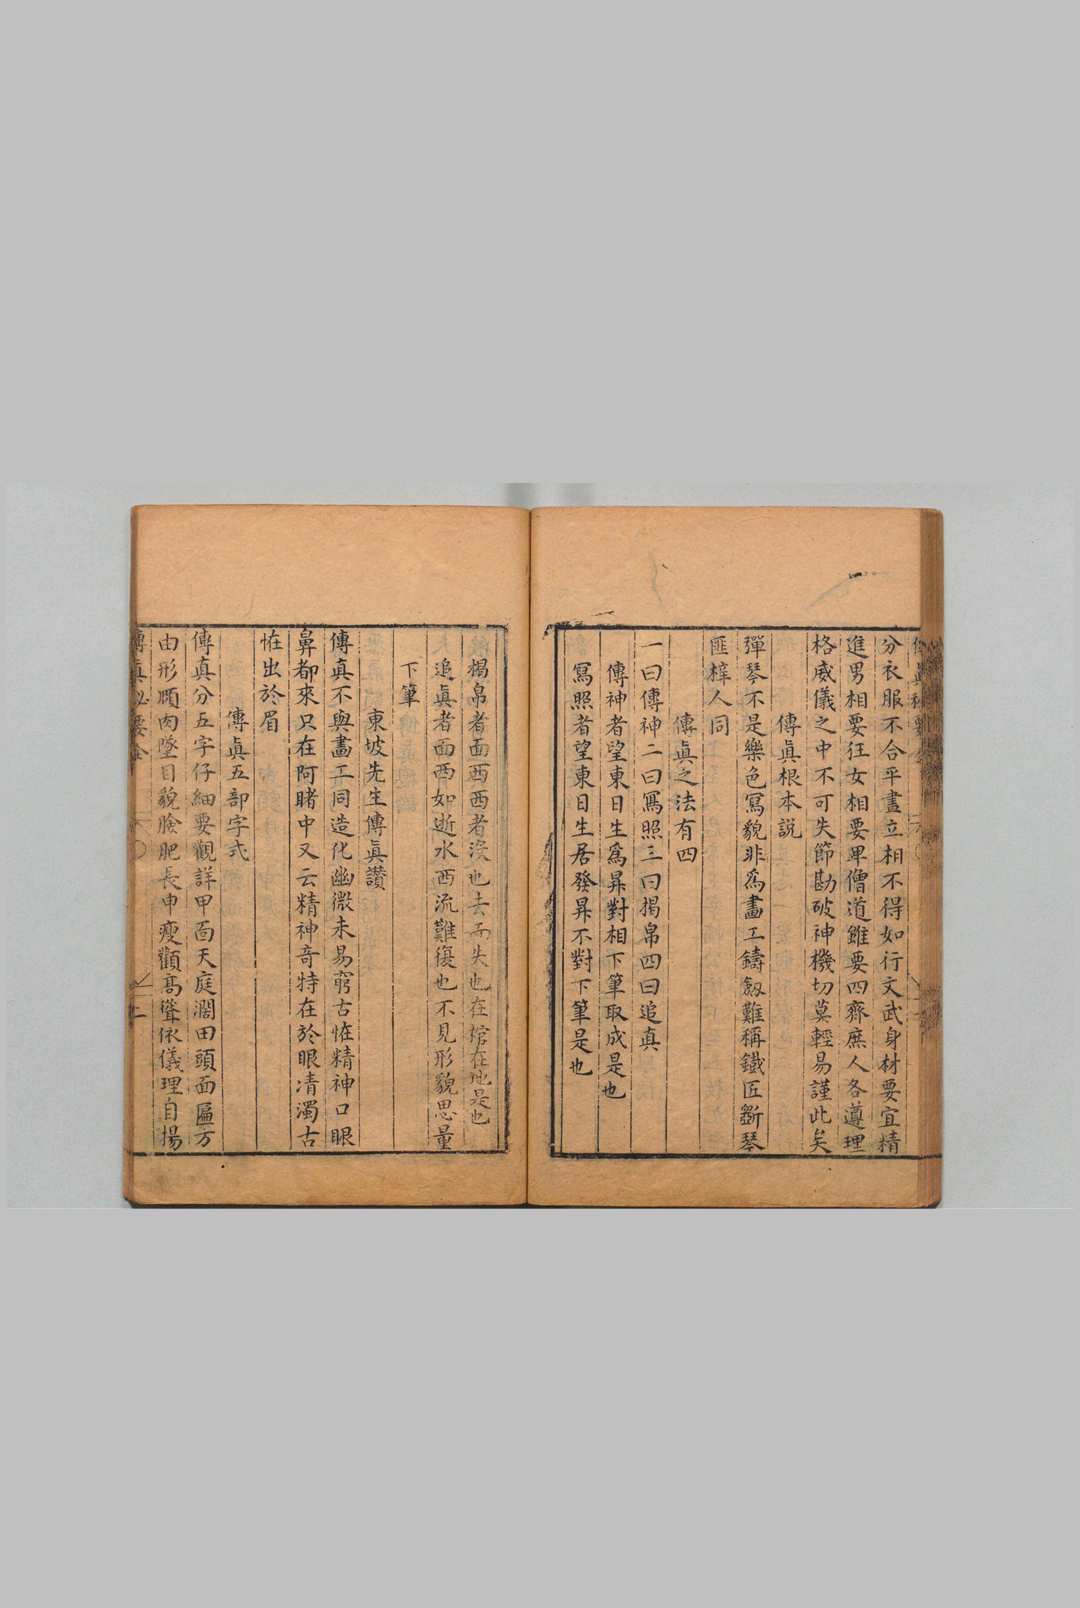 分衣服不合平畫立相不得如行文武身材要宜精
進男相要狂女相要卑僧道雖要四齊庶人各遵理
格威儀之中不可失節勘破神機切莫輕易謹此矣
傳眞根本說
彈琴不是樂色寫貌非為畫工鑄劔難稱鐵匠斵琴
匪梓人同
傳眞之法有四
一曰傳神二曰寫照三曰揭帛四曰追真
傳神者望東日生爲昇對相下筆取成是也
寫照者望東日生居發昇不對下筆是也
揭帛者面西西者沒也去而失也在棺在地是也
追眞者面西如逝水西流難復也不見形貌思量
下筆
東坡先生傳眞讚
傳真不與畫工同造化幽微未易窮古恠精神口眼
鼻都來只在阿睹中又云精神竒特在於眼凊濁古
恠出於眉
傳眞五部字式
傳真分五字仔細要觀詳甲面天庭濶田頭面匾方
由形頤肉墜目貌臉肥長申瘦顴髙聳依儀理自揚
傳真秘要全